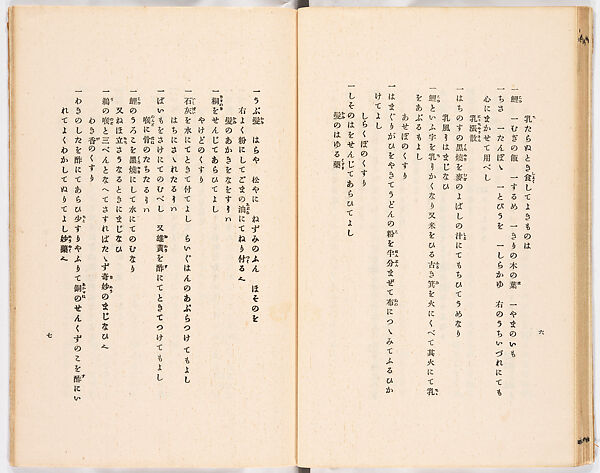 乳たらぬとき食してよきものは
一鯉　一むぎの飯　一するめ　一きりの木の葉　一やまのいも
一ちさ　一たんぽゝ　一とびうを　一しらかゆ　右のうちいづれにても
心にまかせて用べし
乳腫散
一はちのすの黒焼を麥のよばしの汁にてもちひてうめなり
乳風うはまじなひ
一鯉といふ字を乳りかくなり又米をひる古き箕を火にくべて其火にて乳
をあぶるもよし
あせぼのくすり
一はまぐりがひをやきてうどんの粉を半分まぜて布につゝみてふるひか
けてよし
しらくぼのくすり
一しそのはをせんじてあらひてよし
髪のはゆる藥
六
一うぶ髪　はらや　松やに　ねずみのふん　ほそのを
右よく粉にしてごまの油にてねり付る也
髪のあかきをなをすには
一桐をせんじてあらひてよし
やけどのくすり
一石灰を水にてときて付てよし　らいぐはんのあぶらつけてもよし
はちにさゝれたるには
一ばいもをさけにてのむべし　又雄黄を酢にてときてつけてもよし
喉に骨のたちたるには
一鯉のうろこを黒焼にして水にてのむなり
又ねほ立さうなるときにまじなひ
一鵜の喉と三べんとなへてさすればたゝず奇妙のまじなひ也
わき香のくすり
一わきのしたを酢にてあらひ少すりやふりて銅のせんくずのこを酢にい
れてよくわかしてぬりてよし妙藥也
七